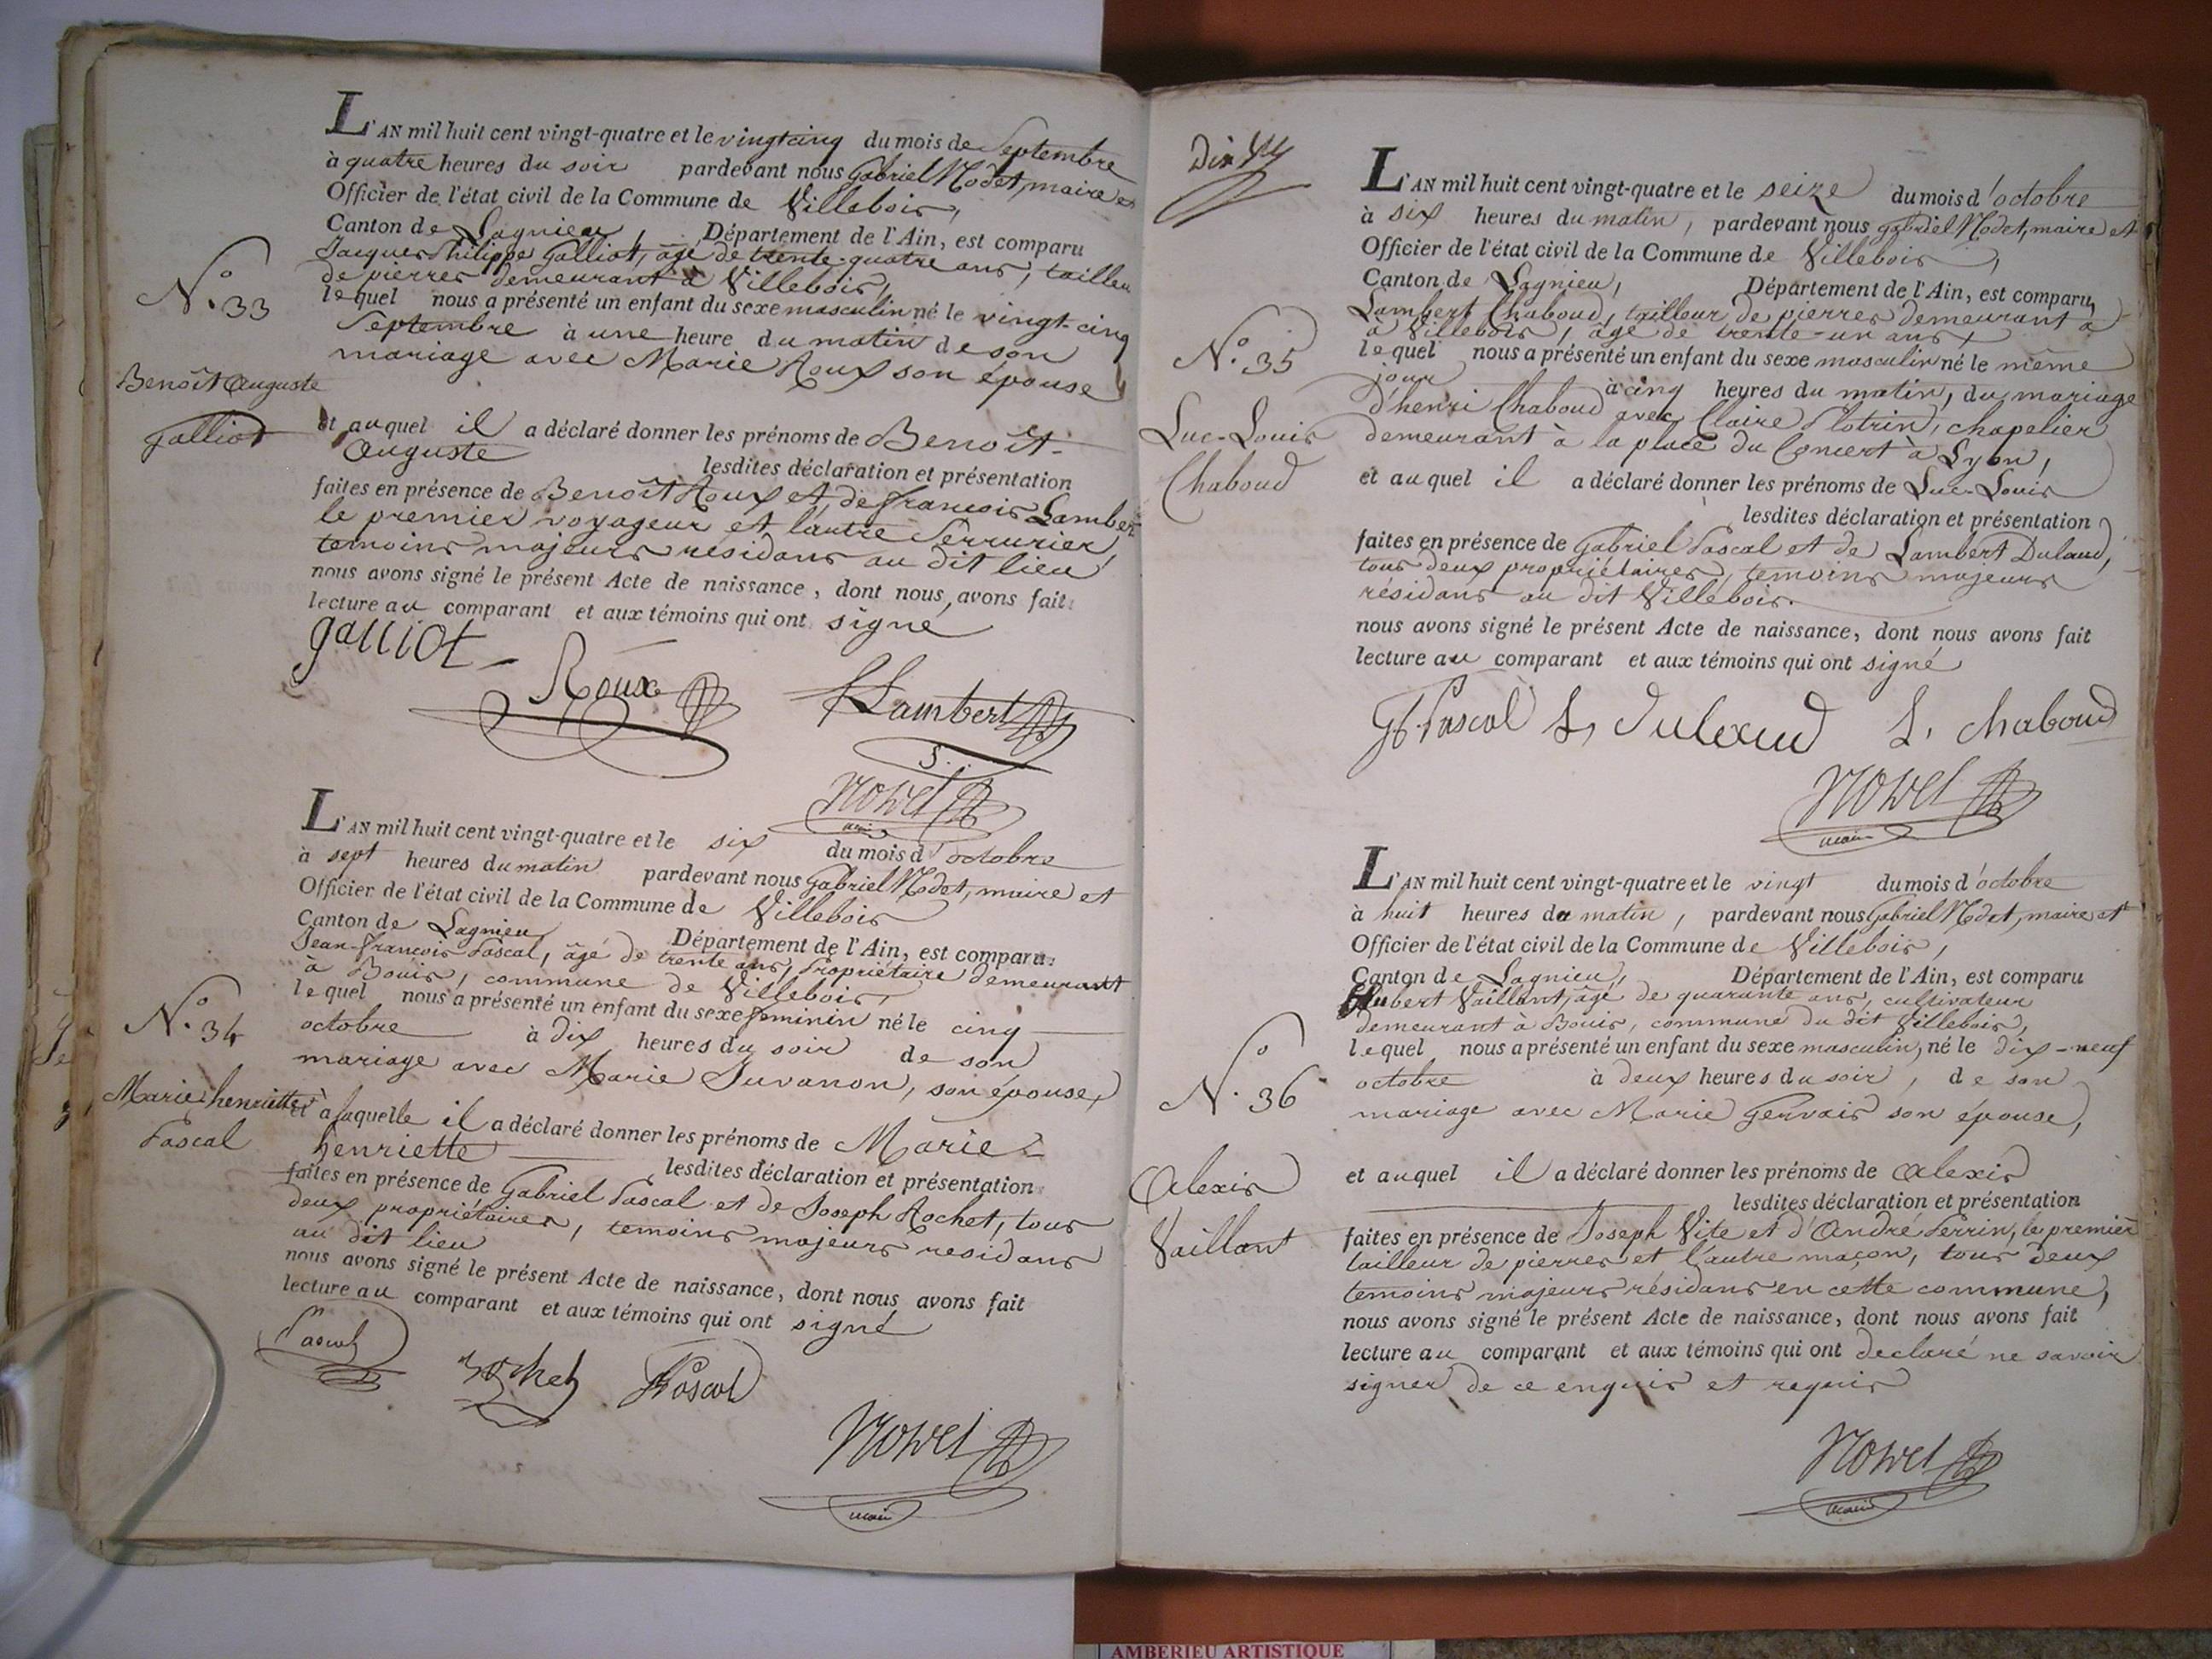 L'AN mil huit cent vingt-quatre et le vingtcinq du mois de Septembre
à quatre heures du soir pardevant nous Gabriel Nodet, maire et
Officier de l'état civil de la Commune de Villebois,
Canton de Lagnieu, Département de l'Ain, est comparu
Jacques Philippe Galliot, âgé de trente-quatre ans, tailleur
de pierres demeurant à Villebois,
N.º 33
lequel nous a présenté un enfant du sexe masculin né le vingt-cinq
Septembre à une heure du matin de son
mariage avec Marie Roux son épouse
Benoît Auguste
Galliot
et auquel il a déclaré donner les prénoms de Benoît-
Auguste
lesdites déclaration et présentation
faites en présence de Benoît Roux et de francois Lambert
le premier voyageur et l'autre Serrurier,
temoins majeurs résidans au dit lieu
nous avons signé le présent Acte de naissance, dont nous avons fait
lecture au comparant et aux témoins qui ont signé
galliot
Roux
Lambert
maire
L'AN mil huit cent vingt-quatre et le six du mois d'octobre
à sept heures du matin pardevant nous Gabriel Nodet, maire et
Officier de l'état civil de la Commune de Villebois
Canton de Lagnieu Département de l'Ain, est comparu
Jean-francois Pascal, âgé de trente ans, Propriétaire demeurant
à Bouis, commune de Villebois,
N.º 34
lequel nous a présenté un enfant du sexe feminin né le cinq
octobre à dix heures du soir de son
mariage avec Marie Juvanon, son épouse,
Marie henriette
Pascal
à laquelle il a déclaré donner les prénoms de Marie-
henriette
lesdites déclaration et présentation
faites en présence de Gabriel Pascal et de Joseph Rochet, tous
deux propriétaires, temoins majeurs residans
au dit lieu
nous avons signé le présent Acte de naissance, dont nous avons fait
lecture au comparant et aux témoins qui ont signé
Pascal
rochet
Pascal
maire
L'AN mil huit cent vingt-quatre et le seize du mois d'octobre
à six heures du matin, pardevant nous gabriel Nodet, maire et
Officier de l'état civil de la Commune de Villebois,
Canton de Lagnieu, Département de l'Ain, est comparu,
Lambert Chaboud, tailleur de pierres demeurant à
à Villebois, âgé de trente-un ans,
N.º 35
lequel nous a présenté un enfant du sexe masculin né le même
jour à cinq heures du matin, du mariage
d'henri Chaboud avec Claire Plotrin, chapelier
demeurant à la place du Concert à Lyon,
Luc-Louis
Chaboud
et auquel il a déclaré donner les prénoms de Luc-Louis
lesdites déclaration et présentation
faites en présence de Gabriel Pascal et de Lambert Dulaud,
tous deux propriétaires, temoins majeurs
résidans au dit Villebois.
nous avons signé le présent Acte de naissance, dont nous avons fait
lecture au comparant et aux témoins qui ont signé
Pascal
L, chaboud
maire
L'AN mil huit cent vingt-quatre et le vingt du mois d'octobre
à huit heures du matin, pardevant nous Gabriel Nodet, maire et
Officier de l'état civil de la Commune de Villebois,
Canton de Lagnieu, Département de l'Ain, est comparu
Vaillant, âgé de quarante ans, cultivateur
demeurant à Bouis, commune du dit Villebois,
N.º 36
lequel nous a présenté un enfant du sexe masculin, né le dix-neuf
octobre à deux heures du soir, de son
mariage avec Marie Gervais son épouse,
Alexis
Vaillant
et auquel il a déclaré donner les prénoms de Alexis
lesdites déclaration et présentation
faites en présence de Joseph Vite et d'André Perrin, le premier
tailleur de pierres et l'autre maçon, tous deux
temoins majeurs résidans en cette commune,
nous avons signé le présent Acte de naissance, dont nous avons fait
lecture au comparant et aux témoins qui ont declaré ne savoir
signer de ce enquis et requis
maire
AMBERIEU ARTISTIQUE